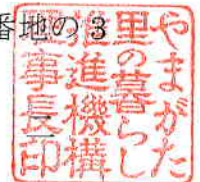 番地の3
やまがた
里の暮らし
推進機構
理事長印